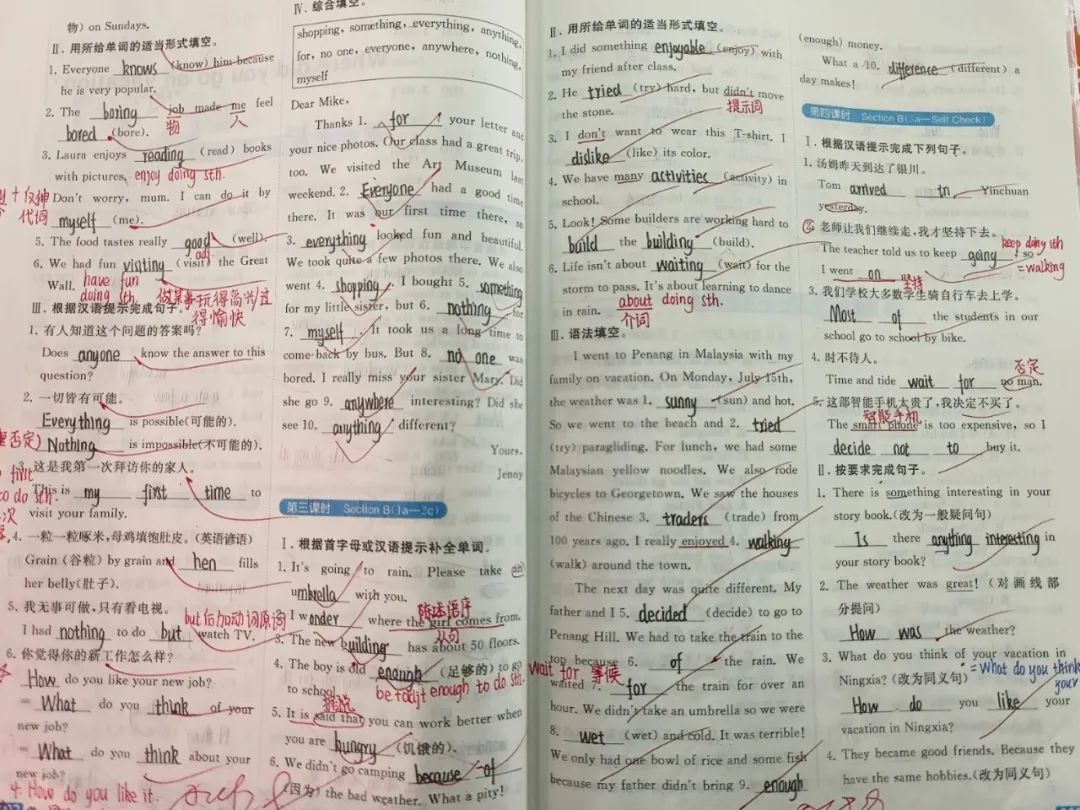 物) on Sundays.
Ⅱ. 用所给单词的适当形式填空。
1. Everyone knows (know) him because
he is very popular.
2. The boring job made me feel
物 人
bored (bore).
3. Laura enjoys reading (read) books
with pictures. enjoy doing sth.
Don't worry, mum. I can do it by
代词 myself (me).
5. The food tastes really good (well).
adj.
6. We had fun visiting (visit) the Great
Wall. have fun
doing sth. 做某事玩得高兴/过
得愉快
Ⅲ. 根据汉语提示完成句子。
1. 有人知道这个问题的答案吗?
Does anyone know the answer to this
question?
2. 一切皆有可能。
Everything is possible(可能的).
否定) Nothing is impossible(不可能的).
first
3. 这是我第一次拜访你的家人。
to do sth.
This is my first time to
visit your family.
4. 一粒一粒啄米,母鸡填饱肚皮。(英语谚语)
Grain (谷粒) by grain and hen fills
her belly(肚子).
5. 我无事可做,只有看电视。
but后加动词原词
I had nothing to do but watch TV.
6. 你觉得你的新工作怎么样?
How do you like your new job?
= What do you think of your
new job?
= What do you think about your
new job?
4. How do you like it.
Ⅳ. 综合填空。
shopping, something, everything, anything,
for, no one, everyone, anywhere, nothing,
myself
Dear Mike,
Thanks 1. for your letter and
your nice photos. Our class had a great trip,
too. We visited the Art Museum last
weekend. 2. Everyone had a good time
there. It was our first time there, so
3. everything looked fun and beautiful.
We took quite a few photos there. We also
went 4. shopping. I bought 5. something
for my little sister, but 6. nothing for
7. myself. It took us a long time to
come back by bus. But 8. no one was
bored. I really miss your sister Mary. Did
she go 9. anywhere interesting? Did she
see 10. anything different?
Yours,
Jenny
第三课时 Section B(1a—2c)
Ⅰ. 根据首字母或汉语提示补全单词。
1. It's going to rain. Please take an
umbrella with you.
陈述语序
I wonder where the girl comes from.
从句
3. The new building has about 50 floors.
4. The boy is old enough (足够的) to go
to school. be 够 enough to do sth.
据说
5. It is said that you can work better when
you are hungry (饥饿的).
6. We didn't go camping because of
(因为) the bad weather. What a pity!
Ⅱ. 用所给单词的适当形式填空。
1. I did something enjoyable (enjoy) with
my friend after class.
2. He tried (try) hard, but didn't move
the stone. 提示词
3. I don't want to wear this T-shirt. I
dislike (like) its color.
4. We have many activities (activity) in
school.
5. Look! Some builders are working hard to
build the building (build).
6. Life isn't about waiting (wait) for the
storm to pass. It's about learning to dance
in rain. about doing sth.
介词
Ⅲ. 语法填空。
I went to Penang in Malaysia with my
family on vacation. On Monday, July 15th,
the weather was 1. sunny (sun) and hot.
So we went to the beach and 2. tried
(try) paragliding. For lunch, we had some
Malaysian yellow noodles. We also rode
bicycles to Georgetown. We saw the houses
of the Chinese 3. traders (trade) from
100 years ago. I really enjoyed 4. walking
(walk) around the town.
The next day was quite different. My
father and I 5. decided (decide) to go to
Penang Hill. We had to take the train to the
top because 6. of the rain. We
wait for 等候
waited 7. for the train for over an
hour. We didn't take an umbrella so we were
8. wet (wet) and cold. It was terrible!
We only had one bowl of rice and some fish
because my father didn't bring 9. enough
(enough) money.
What a 10. difference (different) a
day makes!
第四课时 Section B(3a—Self Check)
Ⅰ. 根据汉语提示完成下列句子。
1. 汤姆昨天到达了银川。
Tom arrived in Yinchuan
yesterday.
② 老师让我们继续走,我才坚持下去。
keep doing sth
The teacher told us to keep going, so
=walking
I went on. 坚持
3. 我们学校大多数学生骑自行车去上学。
Most of the students in our
school go to school by bike.
4. 时不待人。
否定
Time and tide wait for no man.
5. 这部智能手机太贵了,我决定不买了。
智能手机
The smart phone is too expensive, so I
decide not to buy it.
Ⅱ. 按要求完成句子。
1. There is something interesting in your
story book.(改为一般疑问句)
Is there anything interesting in
your story book?
2. The weather was great! (对画线部
分提问)
How was the weather?
3. What do you think of your vacation in
Ningxia? (改为同义句) =What do you think
your
How do you like your
vacation in Ningxia?
4. They became good friends. Because they
have the same hobbies.(改为同义句)